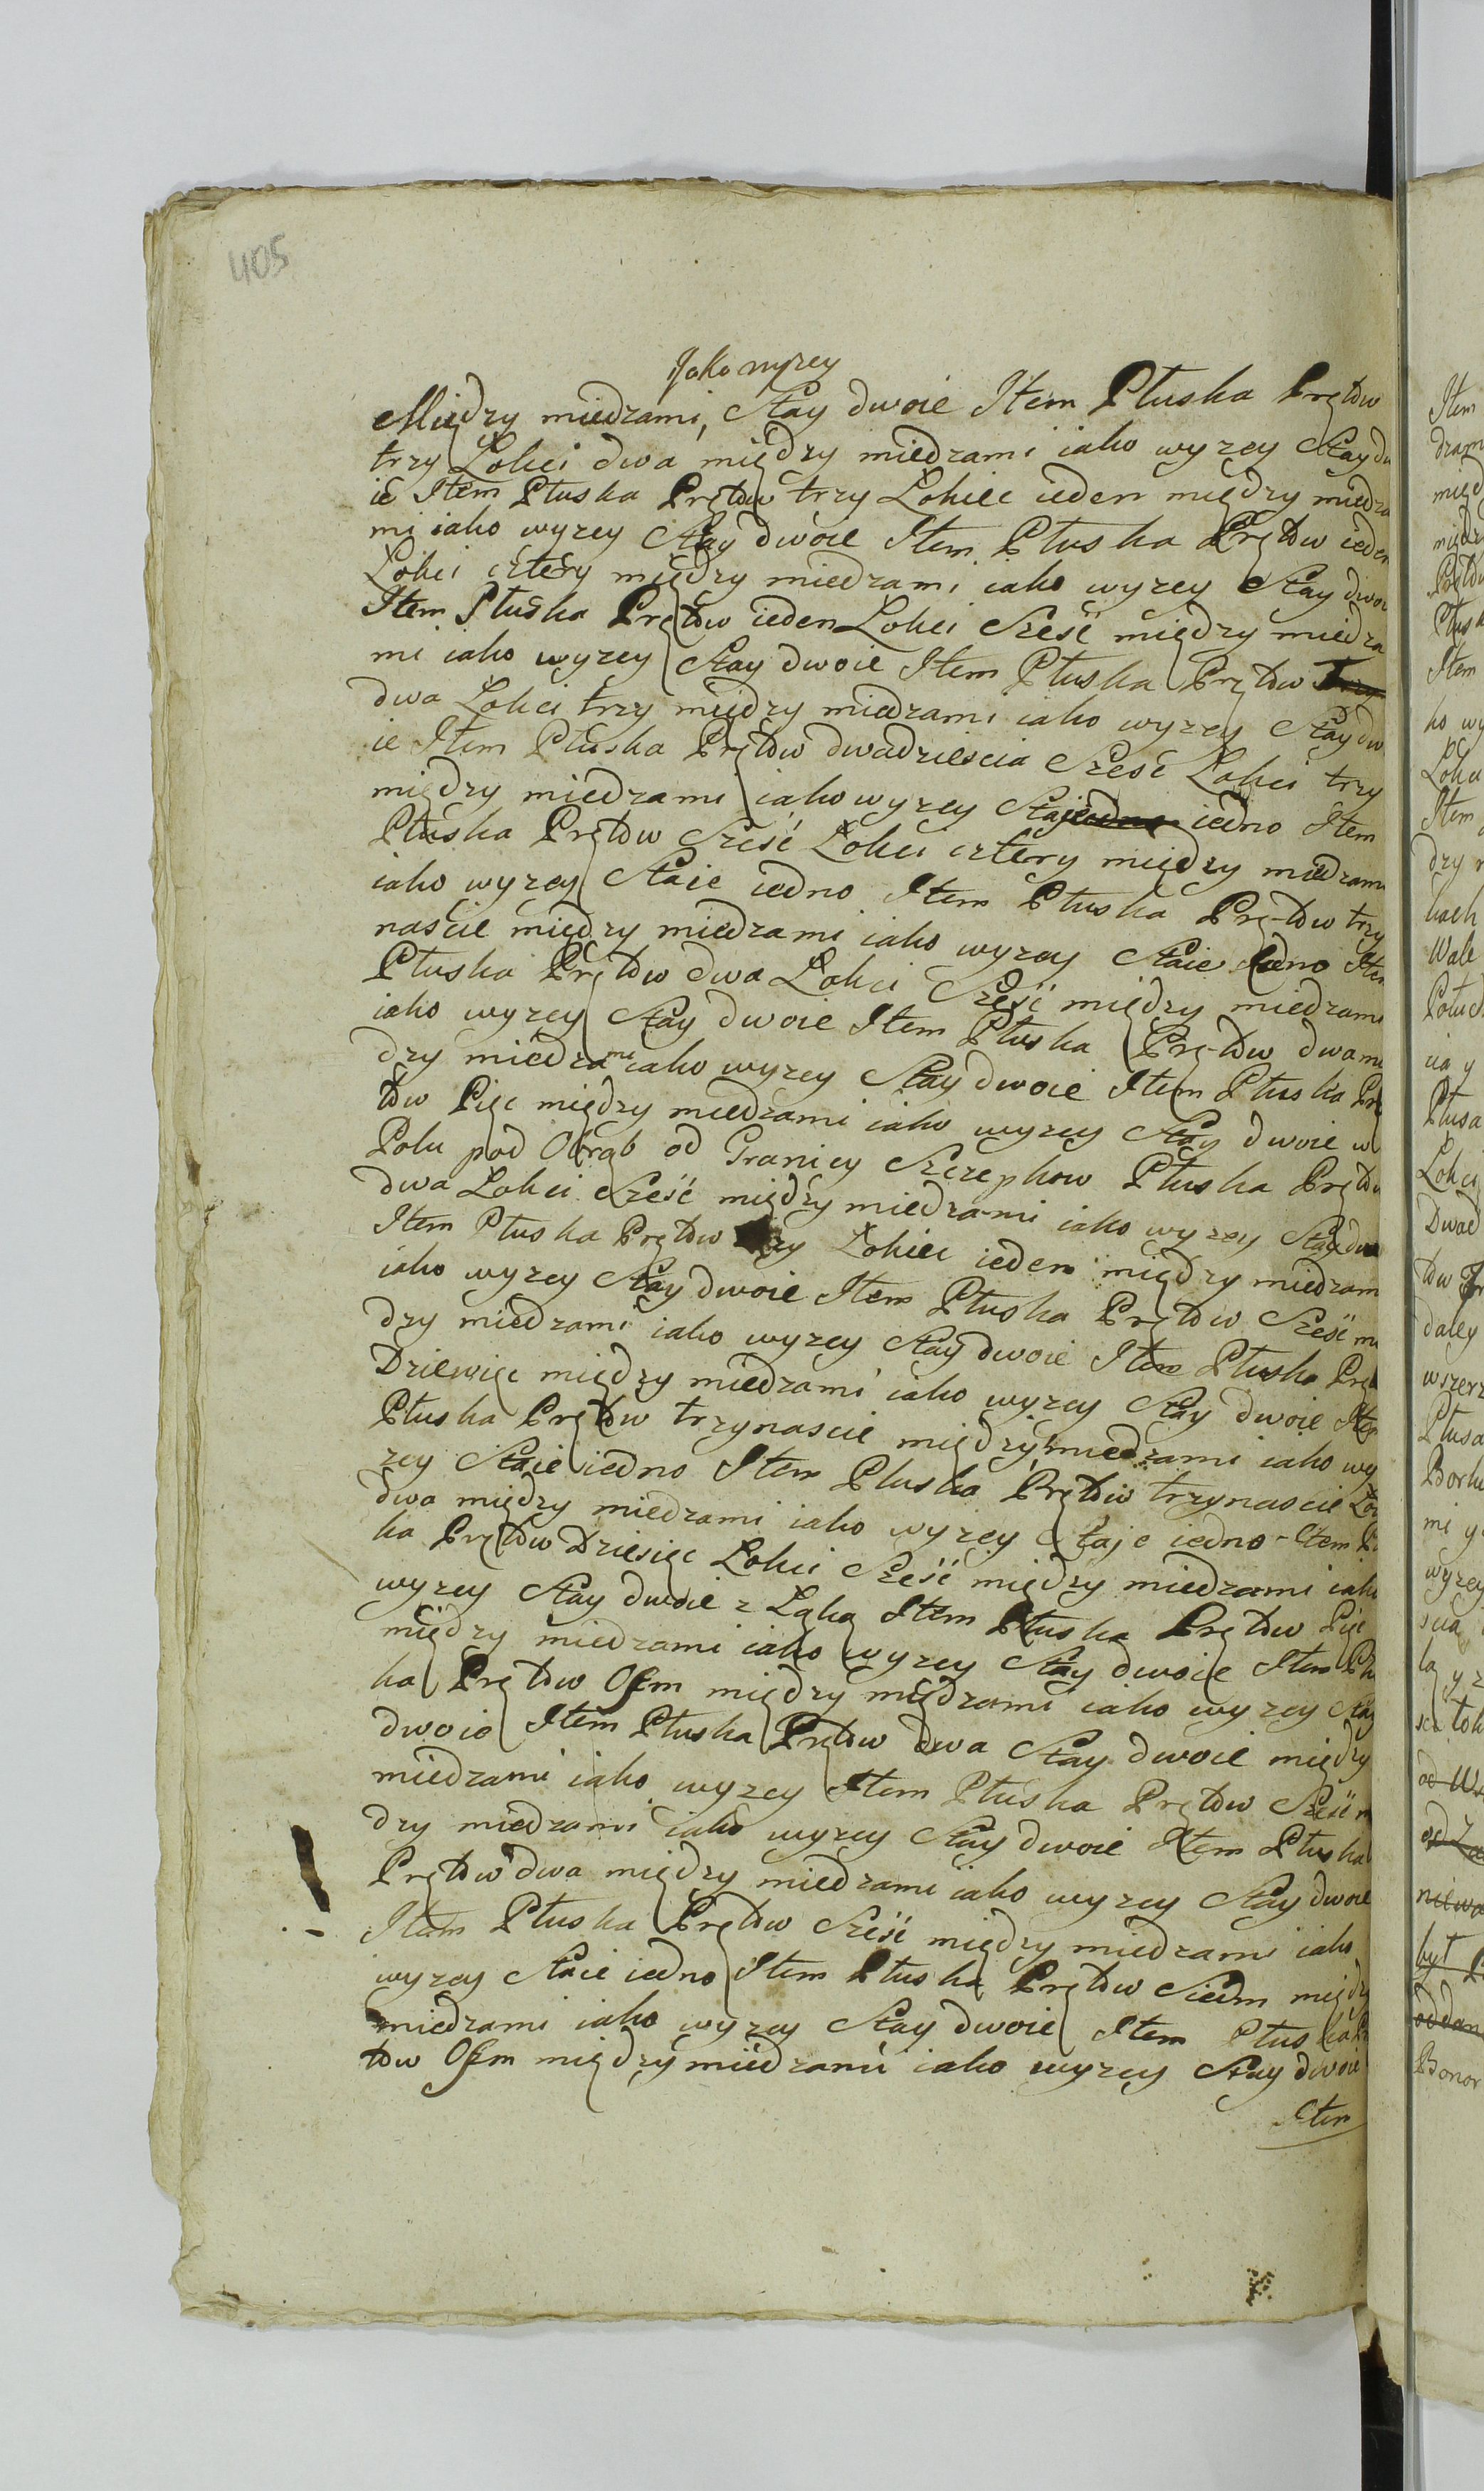 405
Jako wyzey
Między miedzami, Stay dwoie Item Płuska Prętow
trzy Lokci dwa między miedzami iako wyzey Stay dw
ie Item Płuska Prętow trzy Lokiec ieden między miedza
mi iako wyzey Stay dwoie Item Płuska Prętow ieden
Lokci cztery między miedzami iako wyzey Stay dwoi
Item Płuska Prętow ieden Lokci Sześć między miedza
mi iako wyzey Stay dwoie Item Płuska Prętow Trzy
dwa Lokci trzy między miedzami iako wyzey Stay dw
ie Item Płuska Prętow dwadziescia Sześć Lokci trzy
między miedzami iako wyzey Staje iedno Item
Płuska Prętow Sześć Lokci cztery między miedzami
iako wyzey Staie iedno Item Płuska Prę-tow trzy
nascie między miedzami iako wyzey Staie iedno Item
Płuska Prętow dwa Lokci Sześć między miedzami
iako wyzey Stay dwoie Item Płuska Prę-tow dwa mi
dzy miedzami iako wyzey Stay dwoie Item Płuska Prę
tow Pięc między miedzami iako wyzey Stay dwoie w
Polu pod Obrąb od Granicy Szczepkow Płuska Prętow
dwa Lokci Sześć między miedzami iako wyzey Stay dw
Item Płuska Prętow trzy Lokiec ieden między miedzam
iako wyzey Stay dwoie Item Płuska Prętow Sześć mi
dzy miedzami iako wyzey Stay dwoie Item Płuska Pręt
Dziewięc między miedzami iako wyzey Stay dwoie Item
Płuska Prętow trzynascie między miedzami iako wy
zey Staie iedno Item Płuska Prętow trzynascie Lok
dwa między miedzami iako wyzey Staje iedno - Item Pł
ka Prętow Dziesięc Lokci Sześć między miedzami iako
wyzey Stay dwoie z Łąką Item Płuska Prętow Pięc
między miedzami iako wyzey Stay dwoie Item Płu
ka Prętow Osm między miedzami iako wyzey Stay
dwoie Item Płuska Prętow dwa Stay dwoie między
miedzami iako wyzey Item Płuska Prętow Sześć m
dzy miedzami iako wyzey Stay dwoie Item Płuska
Prętow dwa między miedzami iako wyzey Stay dwoie
Item Płuska Prętow Sześć między miedzami iako
wyzey Staie iedno Item Płuska Prętow Siedm między
miedzami iako wyzey Stay dwoie Item Płuska Prę
tow Osm między miedzami iako wyzey Stay dwoie
Item
Item
dzam
międ
międz
Pręto
Płusk
Item
ko wy
Lokci
Item
dzy
kach
Wale
Połud
cia y
Płusa
Lokci
Dwad
tow
daley
wszerz
Płusa
Borku
mi
wyzey
scia
la y z
od
niewa
był
oddan
Bonor